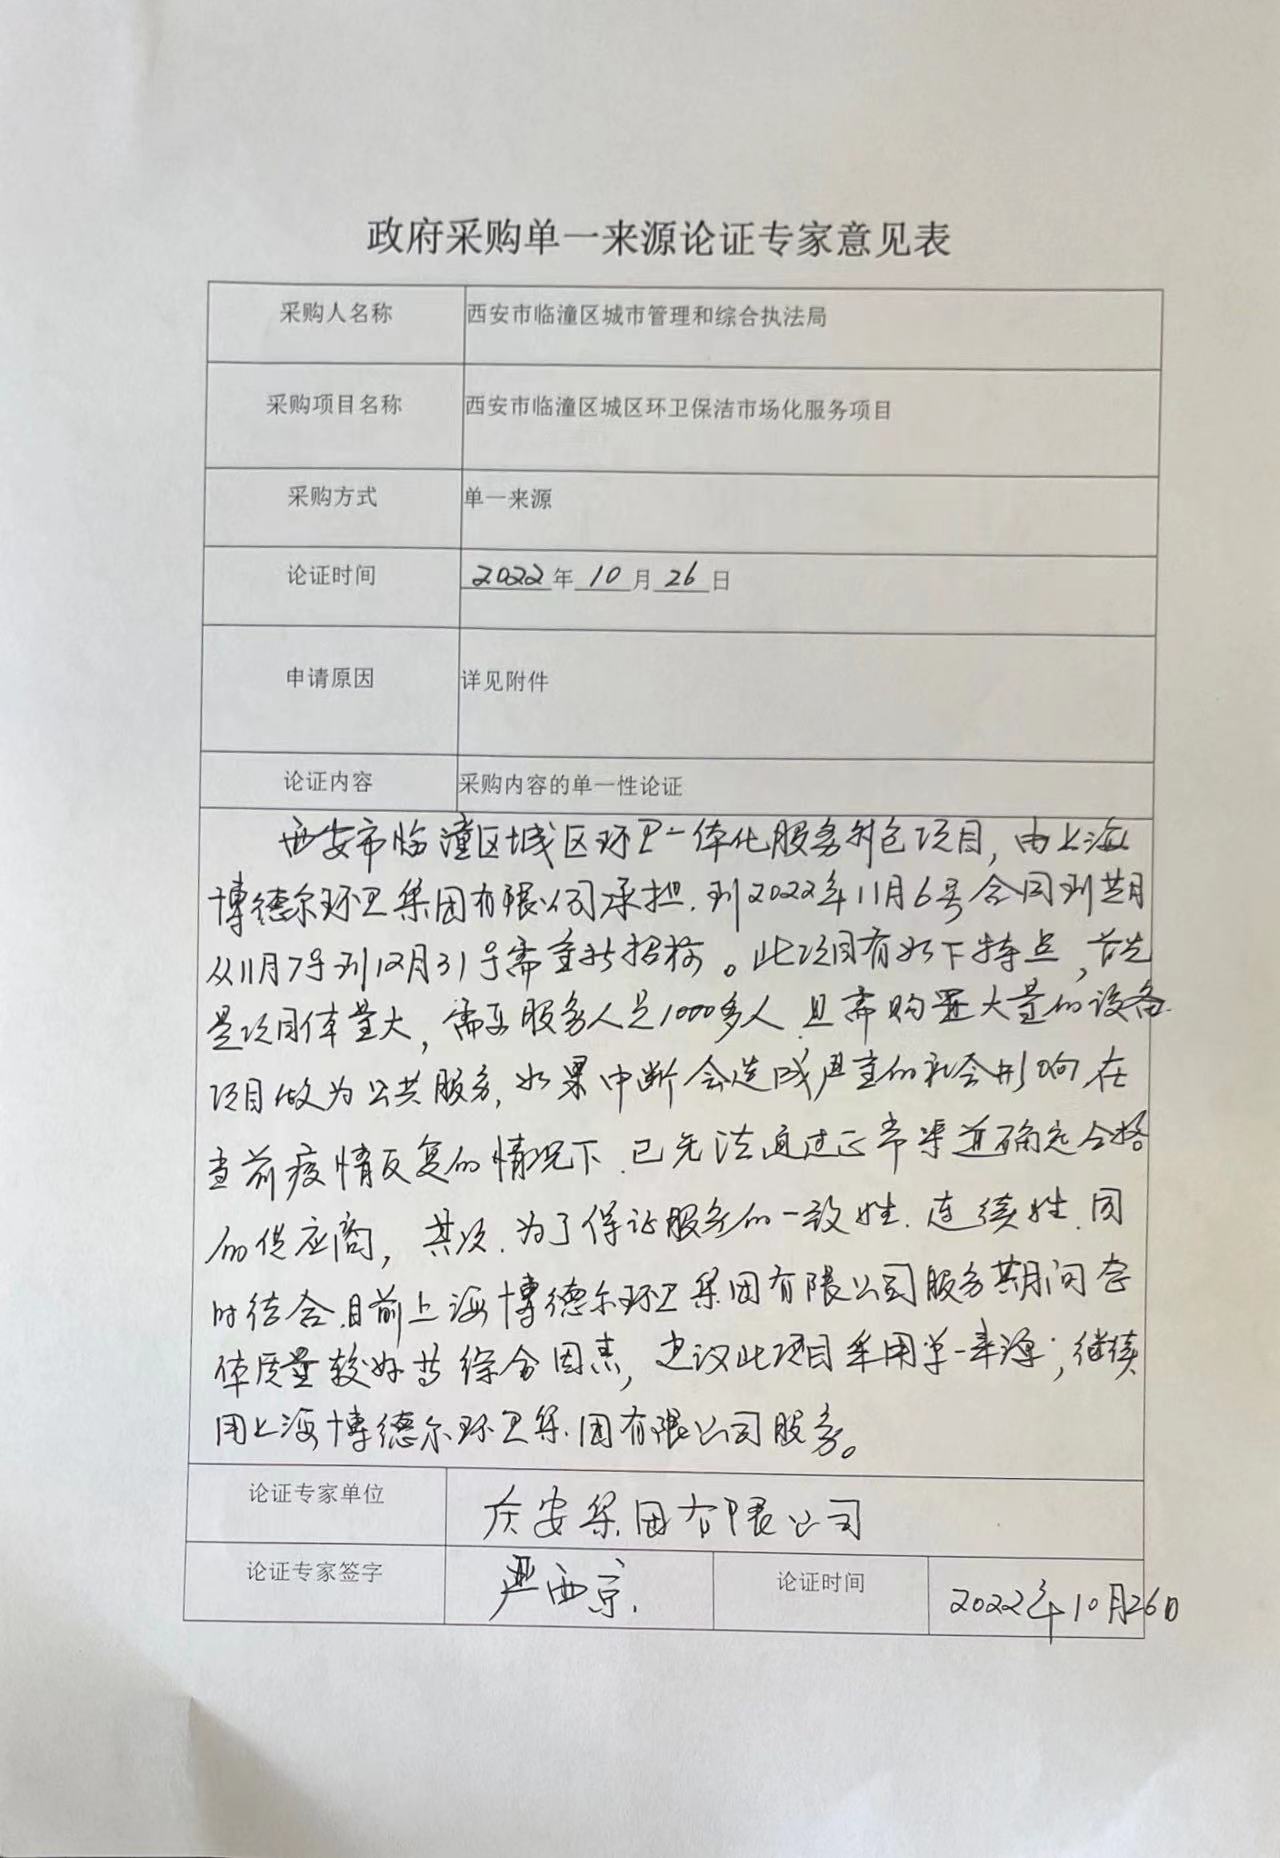 政府采购单一来源论证专家意见表
采购人名称 西安市临潼区城市管理和综合执法局
采购项目名称 西安市临潼区城区环卫保洁市场化服务项目
采购方式 单一来源
论证时间 2022年10月26日
申请原因 详见附件
论证内容 采购内容的单一性论证
西安市临潼区城区环卫一体化服务外包项目,由上海
博德尔环卫集团有限公司承担.到2022年11月6号合同到期
从11月7号到12月31号需重新招标。此项目有如下特点,首先
是项目体量大,需要服务人员1000多人.且需购置大量的设备.
项目做为公共服务,如果中断会造成严重的社会影响在
当前疫情反复的情况下.已无法通过正常渠道确定合格
的供应商,其次.为了保证服务的一致性.连续性.同
时结合目前上海博德尔环卫集团有限公司服务期间
体质量较好等综合因素,建议此项目采用单一来源;继续
用上海博德尔环卫集团有限公司服务。
论证专家单位 庆安集团有限公司
论证专家签字 严西京. 论证时间 2022年10月26日